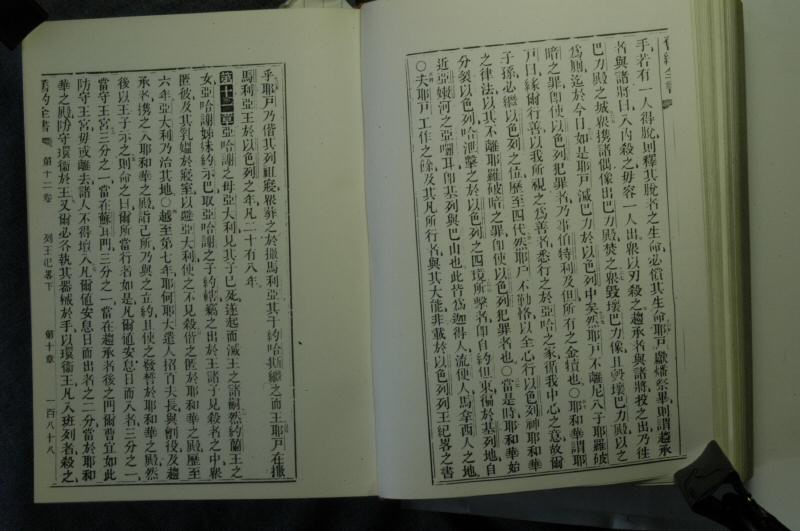 舊約全書
手若有一人得脫則釋其脫者之生命必償其生命耶戶獻燔祭畢則謂趨承
者與諸將曰入內殺之毋容一人出眾以刃殺之趨承者與諸將投之出乃往
巴力殿之城眾攜諸偶像出巴力殿焚之眾毀壞巴力像且毀壞巴力殿以之
為廁迄於今日如是耶戶滅巴力於以色列中矣然耶戶不離尼八子耶羅破
暗之罪即使以色列犯罪者乃事伯特利及但所有之金犢也○耶和華謂耶
戶曰緣爾行善以我所視之為善者悉行之於亞哈之家循我中心之意故爾
子孫必繼以色列之位歷至四代然耶戶不勤恪以全心行以色列神耶和華
之律法以其不離耶羅破暗之罪即使以色列犯罪者也○當是時耶和華始
分裂以色列哈泄擊之於以色列之四境所擊者即自約但東徧於基列地自
近亞嫩河之亞囉耳即基列與巴山也此皆為迦得人流便人馬拿西人之地
○夫耶戶工作之餘及其凡所行者與其大能非載於以色列列王紀畧之書
乎耶戶乃偕其列祖寢眾葬之於撒馬利亞其子約哈斯繼之而王耶戶在撒
馬利亞王於以色列之年凡二十有八年
第十一章亞哈謝之母亞大利見其子已死遂起而滅王之諸嗣然約蘭王之
女亞哈謝姊妹約示巴取亞哈謝之子約轄竊之出於王諸子見殺者之中眾
匿彼及其乳媼於寢室以避亞大利使之不見殺偕之匿於耶和華之殿歷至
六年亞大利乃治其地○越至第七年耶何耶大遣人招百夫長與劊役及趨
承者攜之入耶和華之殿詣己所乃與之立約且使之發誓於耶和華之殿然
後以王子示之則命之曰爾所當行者如是凡爾値安息日而入者三分之一
當守王宮三分之一當在蘇耳門三分之一當在趨承者後之門爾曹宜如此
防守王宮毋或離去諸人不得擅入凡爾値安息日而出者之二分當於耶和
華之殿防守環衞於王又爾必各執其器械於手以環衞王凡入班列者殺之
舊約全書 第十二卷 列王紀畧下 第十章 一百八十八